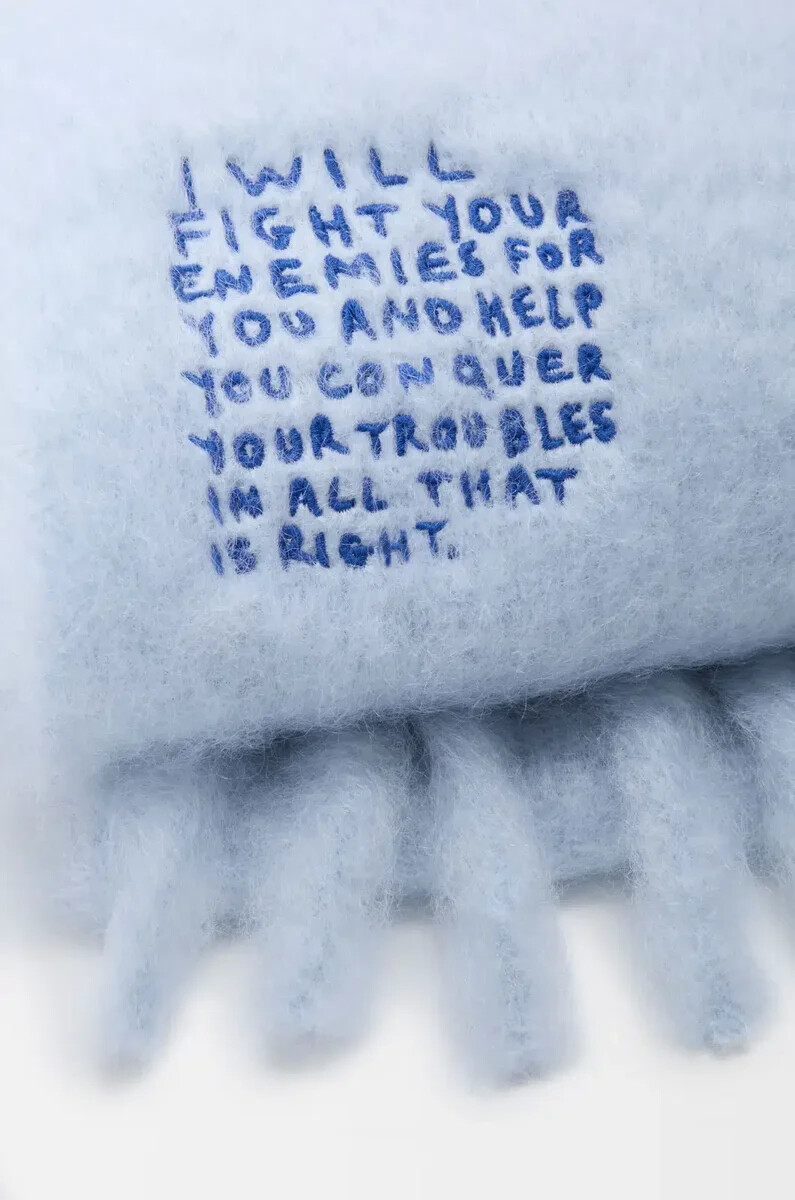 I WILL
FIGHT YOUR
ENEMIES FOR
YOU AND HELP
YOU CONQUER
YOUR TROUBLES
IN ALL THAT
IS RIGHT.